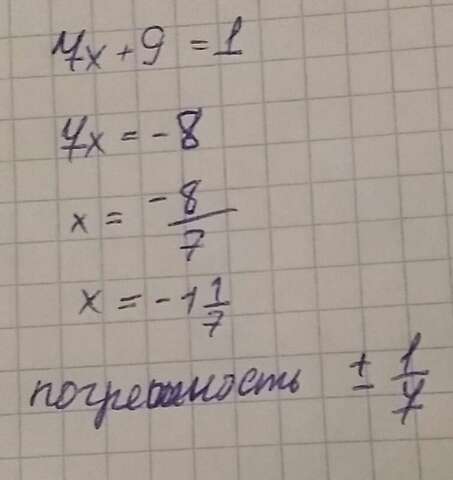 7x + 9 = 1
7x = -8
x = -8/7
x = -1 1/7
погрешность ± 1/7